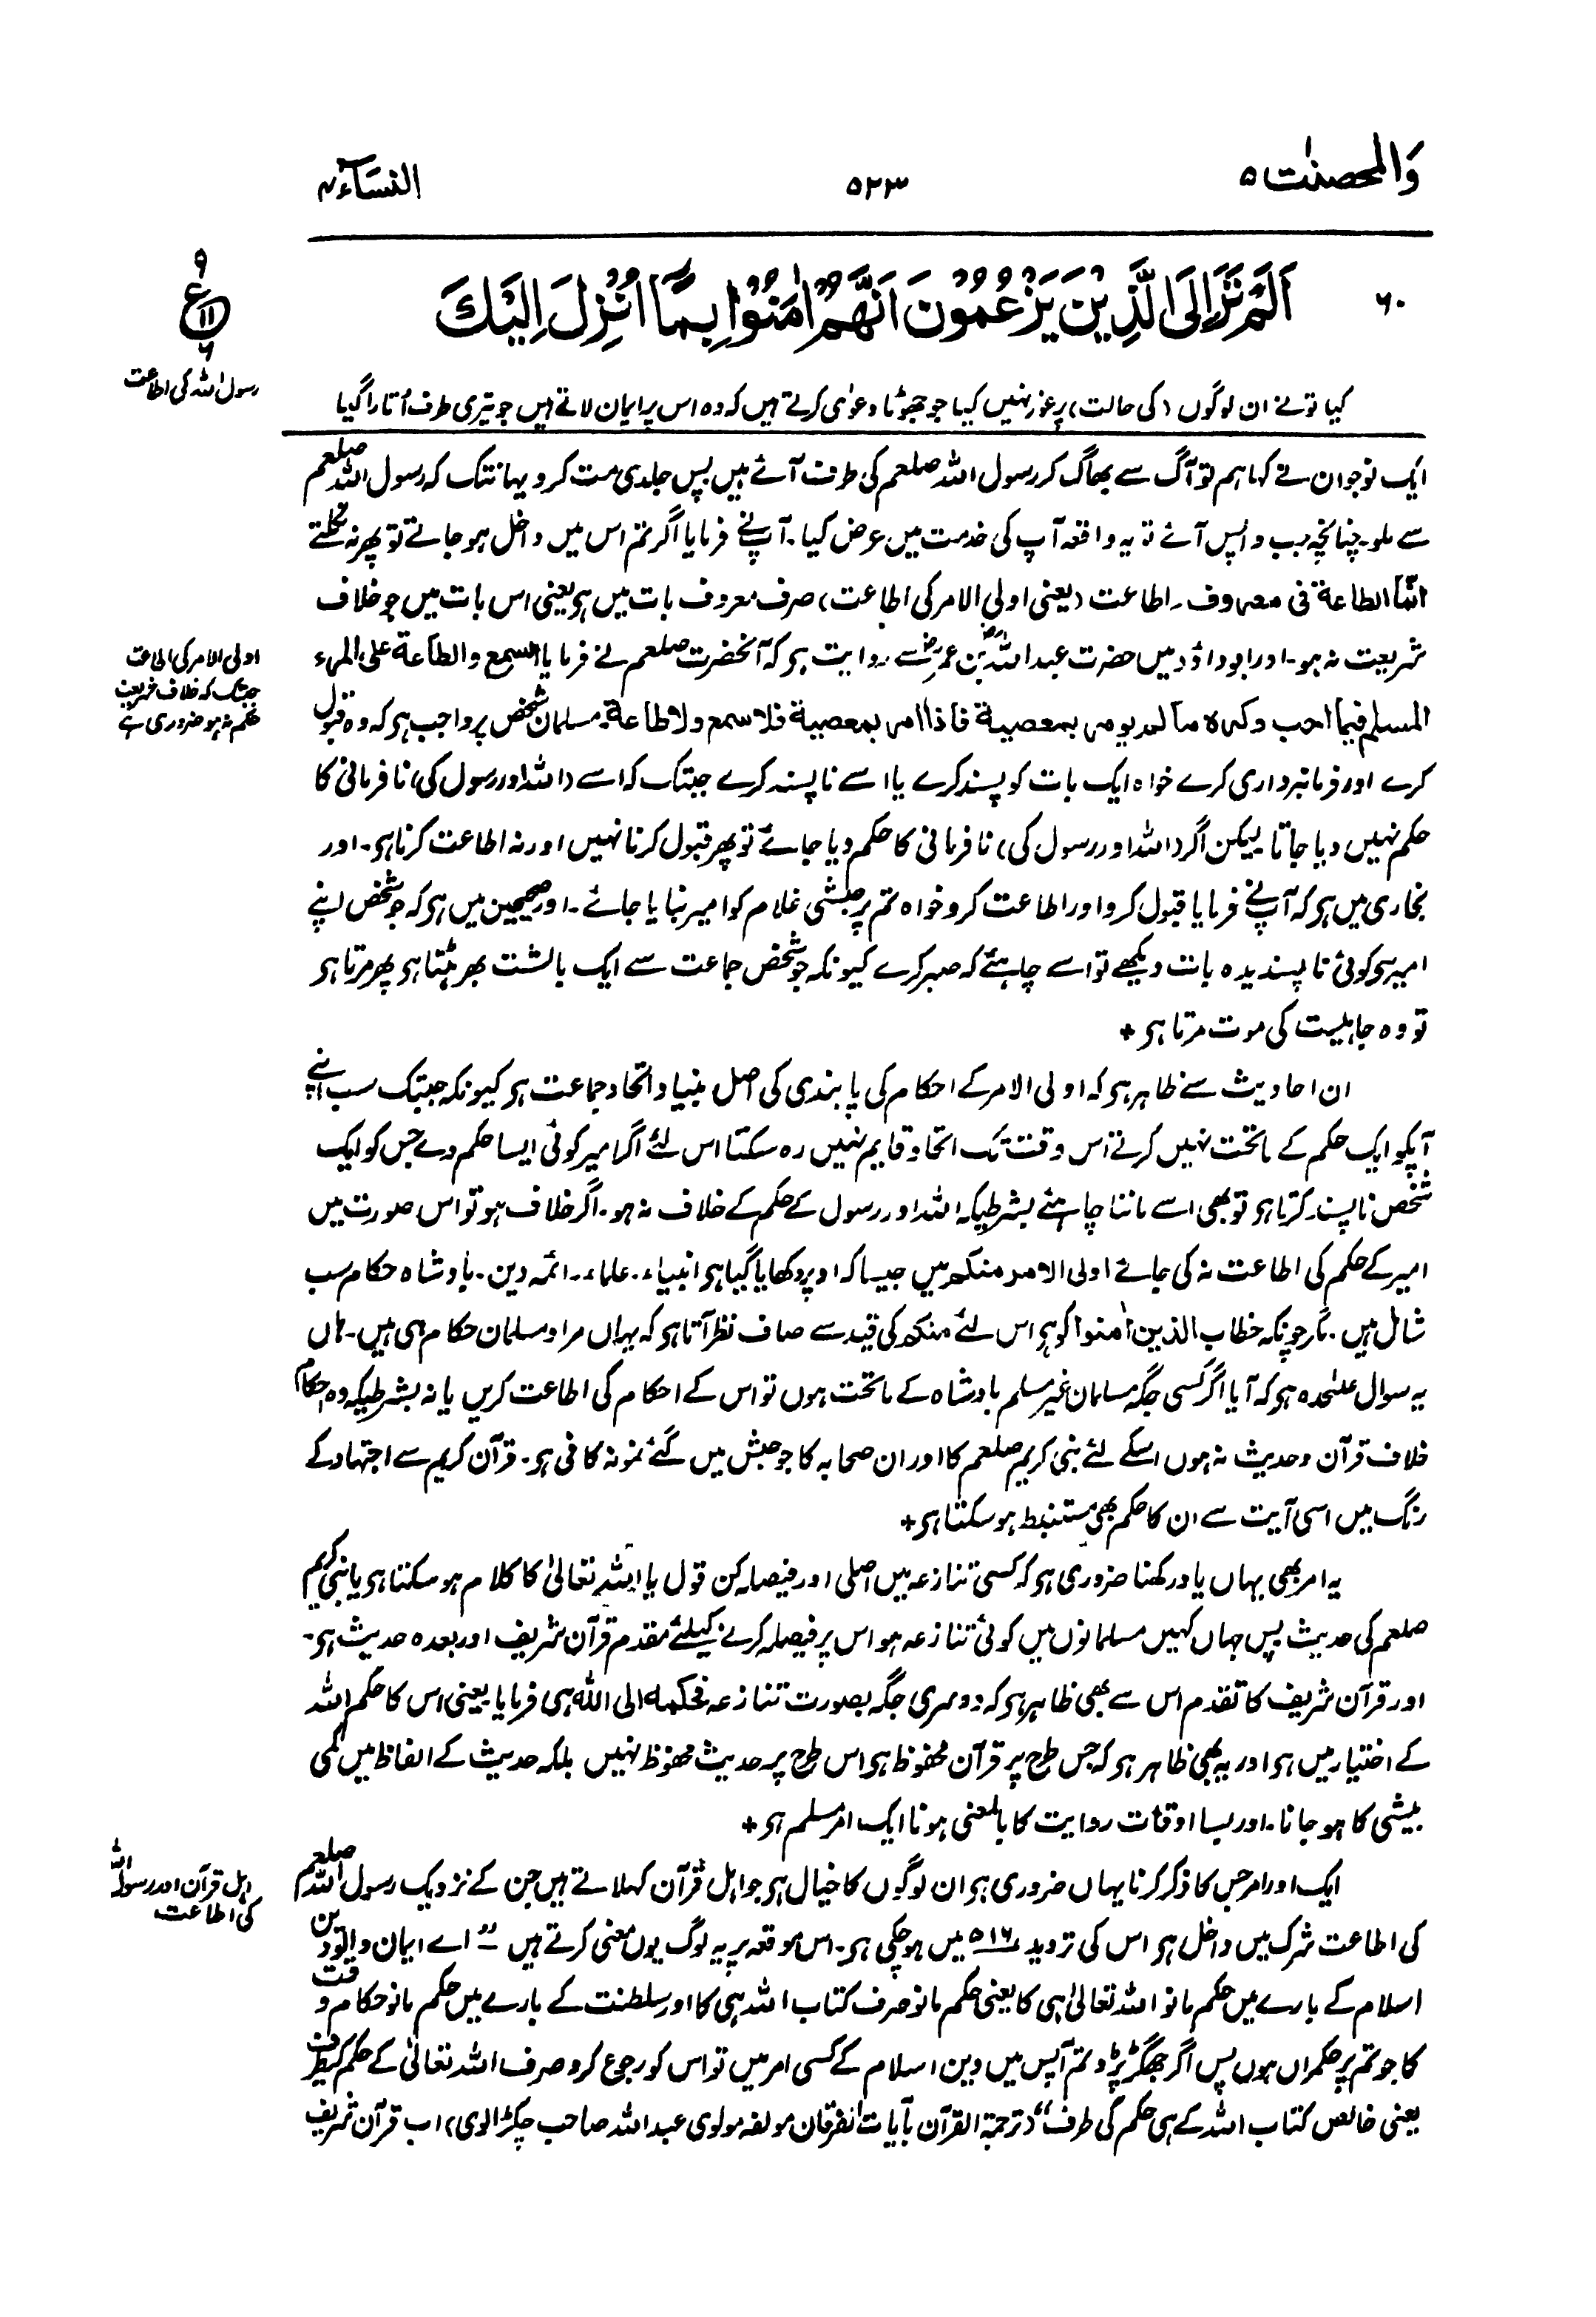 وَالمحصنٰت ۵
۵۲۳
النسَآء ۴
۶۰
اَلَمْ تَرَ اِلَى الَّذِيْنَ يَزْعُمُوْنَ اَنَّهُمْ اٰمَنُوْا بِمَآ اُنْزِلَ اِلَيْكَ
۹
ع
۱۱
۶
رسول اللہ کی اطاعت
کیا تو نے ان لوگوں (کی حالت) پر غور نہیں کیا جو جھوٹا دعوٰی کرتے ہیں کہ وہ اس پر ایمان لاتے ہیں جو تیری طرف اُتارا گیا
ایک نوجوان نے کہا ہم تو آگ سے بھاگ کر رسول اللہ صلعم کی طرف آئے ہیں پس جلدی مت کرو یہانتک کہ رسول اللہ صلعم
سے ملو۔ چنانچہ جب واپس آئے تو یہ واقعہ آپ کی خدمت میں عرض کیا۔ آپ نے فرمایا اگر تم اس میں داخل ہو جاتے تو پھر نہ نکلتے
انما الطاعة فی معروف۔ اطاعت (یعنی اولی الامر کی اطاعت) صرف معروف بات میں ہو یعنی اس بات میں جو خلاف
شریعت نہ ہو۔ اور ابوداؤد میں حضرت عبد اللہ بن عمرؓ سے روایت ہو کہ آنحضرت صلعم نے فرمایا السمع والطاعة علی المرء
المسلم فیما احب وکرہ ما لم یومر بمعصیة فاذا امر بمعصیة فلا سمع ولا طاعة۔ مسلمان شخص پر واجب ہو کہ وہ قبول
اولی الامر کی اطاعت
جبتک کہ خلاف شریعت
حکم نہ ہو ضروری ہے
کرے اور فرمانبرداری کرے خواہ ایک بات کو پسند کرے یا اسے ناپسند کرے جبتک کہ اسے (اللہ اور رسول کی) نافرمانی کا
حکم نہیں دیا جاتا لیکن اگر (اللہ اور رسول کی) نافرمانی کا حکم دیا جائے تو پھر قبول کرنا نہیں اور نہ اطاعت کرنا ہو۔ اور
بخاری میں ہو کہ آپ نے فرمایا قبول کرو اور اطاعت کرو خواہ تم پر حبشی غلام کو امیر بنایا جائے۔ اور صحیحین میں ہو کہ جو شخص اپنے
امیر سے کوئی ناپسندیدہ بات دیکھے تو اسے چاہئے کہ صبر کرے کیونکہ جو شخص جماعت سے ایک بالشت بھر ہٹتا ہو پھر مرتا ہو
تو وہ جاہلیت کی موت مرتا ہو +
ان احادیث سے ظاہر ہو کہ اولی الامر کے احکام کی پابندی کی اصل بنیاد اتحاد جماعت ہو کیونکہ جبتک سب اپنے
آپکو ایک حکم کے ماتحت نہیں کرتے اس وقت تک اتحاد قایم نہیں رہ سکتا اس لئے اگر امیر کوئی ایسا حکم دے جس کو ایک
شخص ناپسند کرتا ہو تو بھی اسے ماننا چاہئے بشرطیکہ اللہ اور رسول کے حکم کے خلاف نہ ہو۔ اگر خلاف ہو تو اس صورت میں
امیر کے حکم کی اطاعت نہ کی جائے اولی الامر منکم میں جیسا کہ اوپر دکھایا گیا ہو انبیاء۔ علماء۔ ائمہ دین۔ بادشاہ حکام سب
شامل ہیں۔ مگر چونکہ خطاب الذین اٰمنوا کو ہو اس لئے منکم کی قید سے صاف نظر آتا ہو کہ یہاں مراد مسلمان حکام ہی ہیں۔ ہاں
یہ سوال علٰحدہ ہو کہ آیا اگر کسی جگہ مسلمان غیر مسلم بادشاہ کے ماتحت ہوں تو اس کے احکام کی اطاعت کریں یا نہ بشرطیکہ وہ احکام
خلاف قرآن و حدیث نہ ہوں اسکے لئے نبی کریم صلعم کا اور ان صحابہ کا جو حبش میں گئے نمونہ کافی ہو۔ قرآن کریم سے اجتہاد کے
رنگ میں اسی آیت سے ان کا حکم بھی مستنبط ہو سکتا ہو +
یہ امر بھی یہاں یاد رکھنا ضروری ہو کہ کسی تنازعہ میں اصلی اور فیصلہ کن قول یا اللہ تعالیٰ کا کلام ہو سکتا ہو یا نبی کریم
صلعم کی حدیث پس جہاں کہیں مسلمانوں میں کوئی تنازعہ ہو اس پر فیصلہ کرنے کیلئے مقدم قرآن شریف اور بعدہ حدیث ہو۔
اور قرآن شریف کا تقدم اس سے بھی ظاہر ہو کہ دوسری جگہ بصورت تنازعہ فحکمہ الی اللہ ہی فرمایا یعنی اس کا حکم اللہ
کے اختیار میں ہو اور یہ بھی ظاہر ہو کہ جس طرح پر قرآن محفوظ ہو اس طرح پر حدیث محفوظ نہیں بلکہ حدیث کے الفاظ میں کمی
بیشی کا ہو جانا۔ اور بسا اوقات روایت کا بالمعنی ہونا ایک امر مسلم ہو +
ایک اور امر جس کا ذکر کرنا یہاں ضروری ہو ان لوگوں کا خیال ہو جو اہل قرآن کہلاتے ہیں جن کے نزدیک رسول اللہ صلعم
اہل قرآن اور رسول اللہ
کی اطاعت
کی اطاعت شرک میں داخل ہو اس کی تردید ۵۱۶ میں ہو چکی ہو۔ اس موقعہ پر یہ لوگ یوں معنی کرتے ہیں ”اے ایمان والو دین
اسلام کے بارے میں حکم مانو اللہ تعالیٰ ہی کا یعنی حکم مانو صرف کتاب اللہ ہی کا اور سلطنت کے بارے میں حکم مانو حکام وقت
کا جو تم پر حکمراں ہوں پس اگر جھگڑ پڑو تم آپس میں دین اسلام کے کسی امر میں تو اس کو رجوع کرو صرف اللہ تعالیٰ کے حکم کیطرف
یعنی خالص کتاب اللہ کے ہی حکم کی طرف“ (ترجمۃ القرآن بآیات الفرقان مولفہ مولوی عبد اللہ صاحب چکڑالوی) اب قرآن شریف